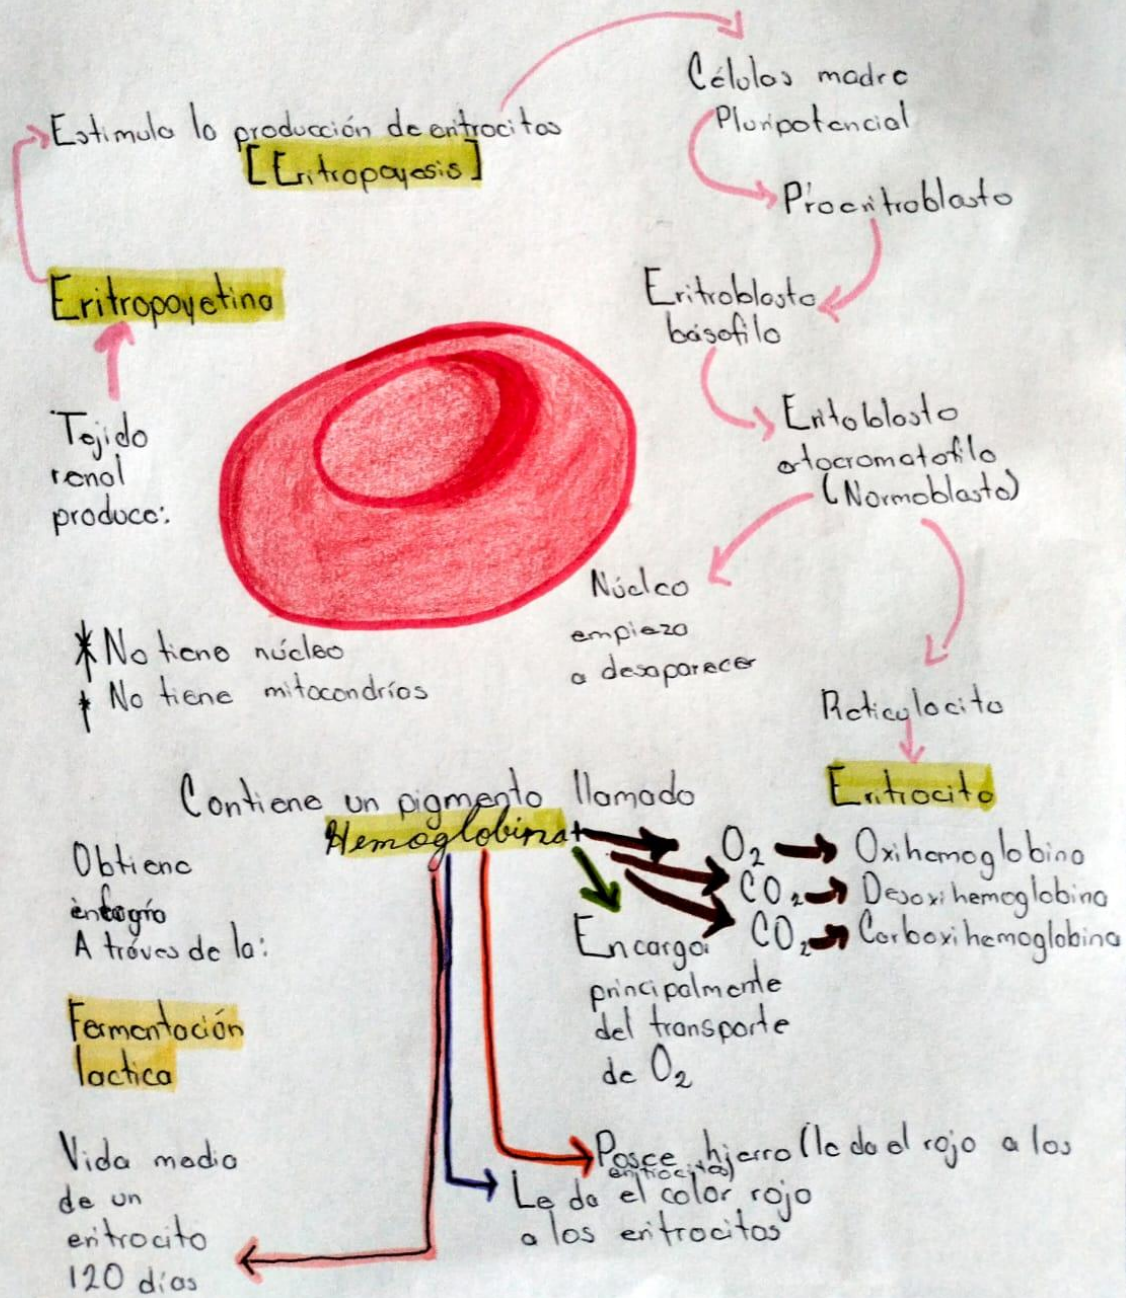 Estimula la producción de eritrocitos
[Eritropoyesis]
Eritropoyetina
Tejido
renal
produce:
Células madre
Pluripotencial
Proeritroblasto
Eritroblasto
básofilo
Eritoblasto
ortocromatofilo
(Normoblasto)
Núcleo
empieza
a desaparecer
Reticulocito
Eritrocito
* No tiene núcleo
* No tiene mitocondrias
Contiene un pigmento llamado
Hemoglobina
O2 → Oxihemoglobina
CO2 → Desoxihemoglobina
CO2 → Carboxihemoglobina
Encarga
principalmente
del transporte
de O2
Obtiene
A tráves de la:
Fermentación
lactica
Posee hierro (le da el rojo a los
eritrocitos)
Le da el color rojo
a los eritrocitos
Vida media
de un
eritrocito
120 días